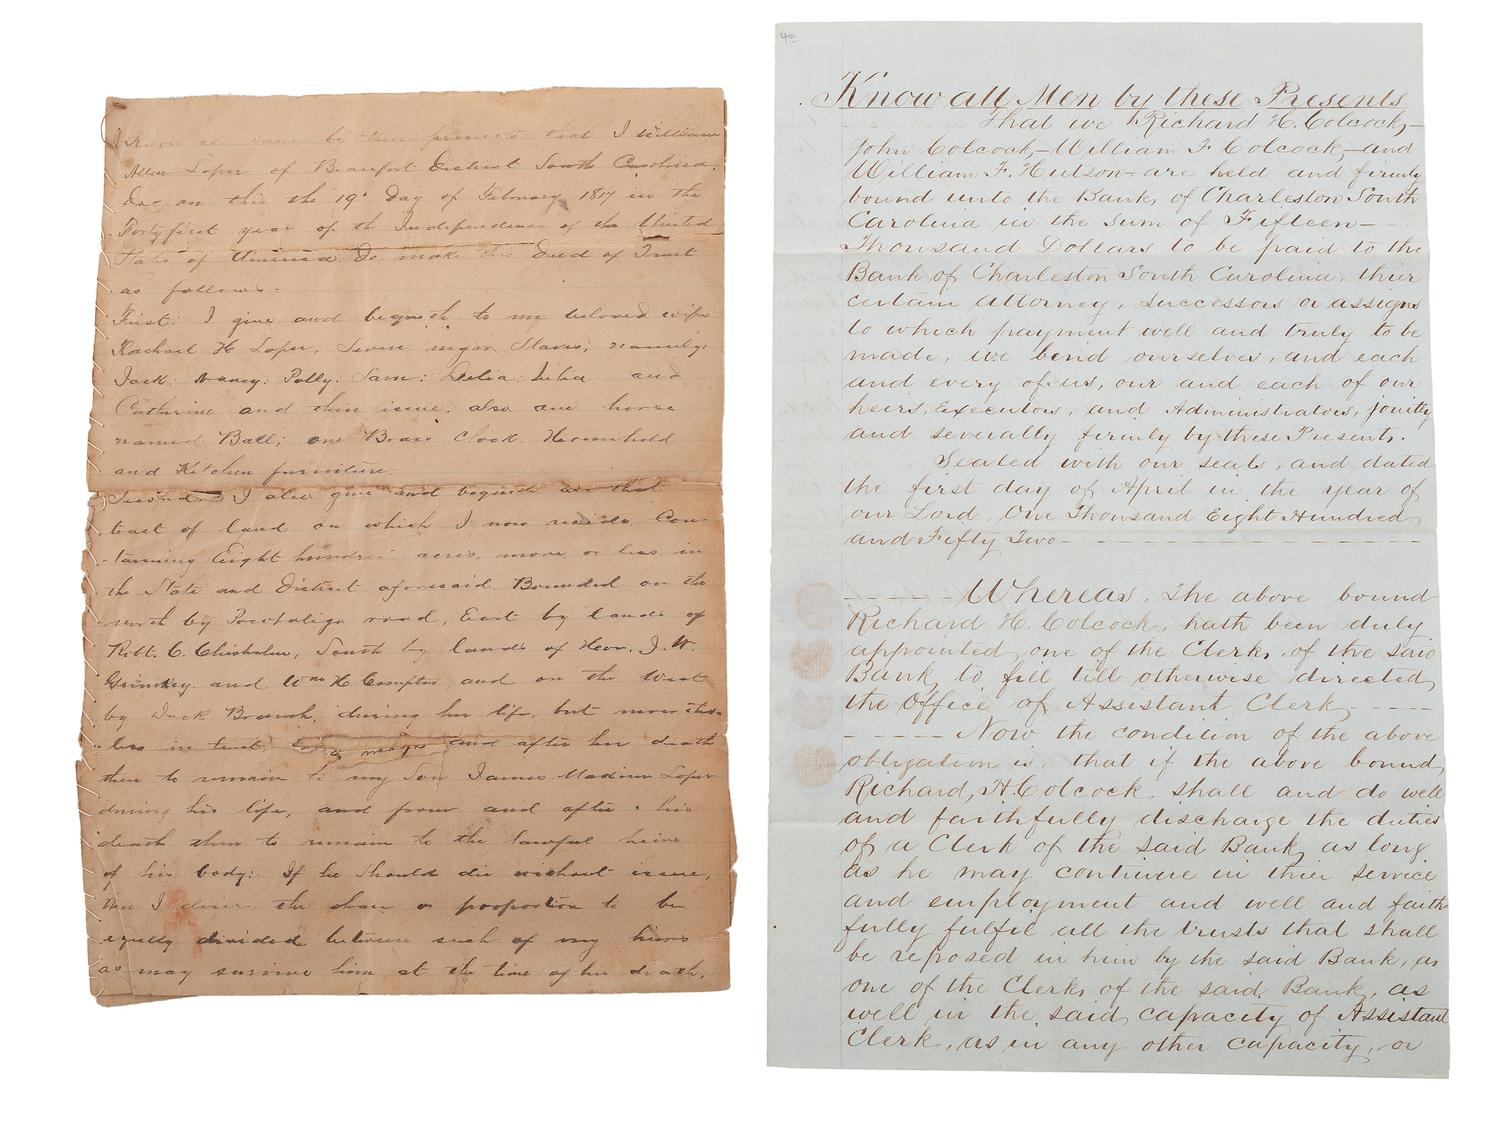 Know all men by these presents that I William
Allen Loper of Beaufort District South Carolina,
Do on this the 19th Day of February 1817 in the
Forty first year of the Independence of the United
States of America Do make this Deed of Trust
as follows.
First: I give and beqeith to my beloved wife
Rachael H Loper, Seven negro Slaves; namely:
Jack: Nancy: Polly: Sam: Delia: Julia and
Cathrine and thier issue. also one horse
named Ball; one Brass Clock. Household
and Kitchen furniture.
Second. I also give and beqeith all that
tract of land on which I now reside, Con-
-taining Eight hundred acres, more or less, in
the State and District aforesaid. Bounded on the
north by Pocotaligo road, East by lands of
Robt. C. Chisholm, South by lands of Hon. J. W.
Grimkey, and Wm H Compton, and on the West
by Duck Branch, during her life, but
in trust, and after her death
then to remain to my Son James Madison Loper
during his life, and from and after his
death then to remain to the lawful heirs
of his body: If he should die without issue,
then I desire the share or proportion to be
equlley divided between such of my heirs
as may survive him at the time of his death.
4th
Know all Men by these Presents
That we Richard H. Colcock,-
John Colcock,-William F Colcock,-and
William F. Hutson-are held and firmly
bound unto the Bank, of Charleston South
Carolina in the sum of Fifteen-
Thousand Dollars to be paid to the
Bank of Charleston South Carolina, thier
certain attorney, successors or assigns
to which payment well and truly to be
made, we bind ourselves, and each
and every of us, our and each of our
heirs, Executors, and Administrators, jointly
and severally firmly by these Presents.
Sealed with our seals, and dated
the first day of April in the year of
our Lord, One Thousand Eight Hundred
and Fifty Two-
Whereas, The above bound
Richard H. Colcock, hath been duly
appointed, one of the Clerks, of the said
Bank, to fill till otherwise directed,
the Office of Assistant Clerk,
Now the condition of the above
obligation is, that if the above bound,
Richard, H. Colcock, shall and do well
and faithfully discharge the duties
of a Clerk of the said Bank, as long
as he may continue in thier service
and employment and well and faith-
fully fulfil all the trusts that shall
be reposed in him by the said Bank, as
one of the Clerks of the said Bank, as
well in the said, capacity of Assistant
Clerk, as in any other capacity, or